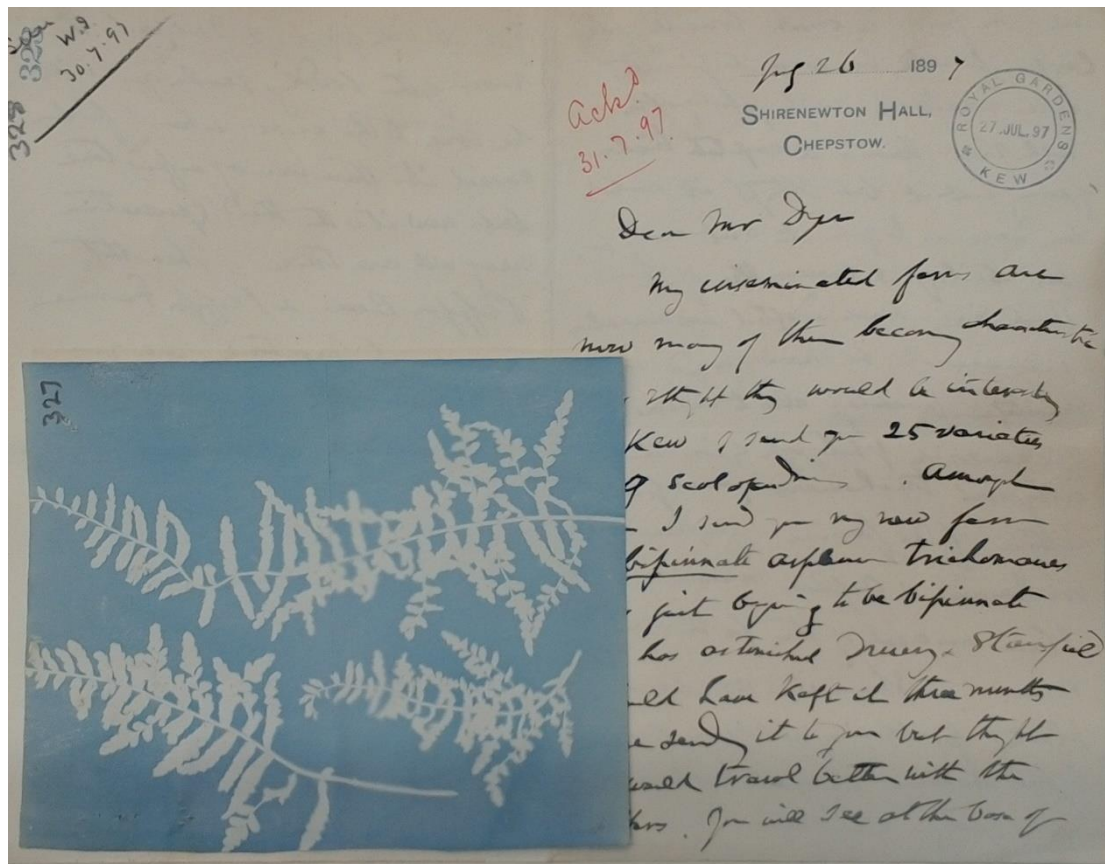 328
328
W.S
30.7.97
Ackd
31.7.97.
July 26 1897
SHIRENEWTON HALL,
CHEPSTOW.
ROYAL GARDENS
27.JUL.97
KEW
327
Dear Mr Dyer
My inseminated ferns are
now many of them becoming characteristic
they would be interesting
Kew I send you 25 varieties
of scolopendriums. Amongst
I send you my new fern
bipinnate asplenium trichomanes
just begining to be bipinnate
has astonished Druery & Stansfield
have kept it three months
sending it to you but thought
would travel better with the
You will see at the base of